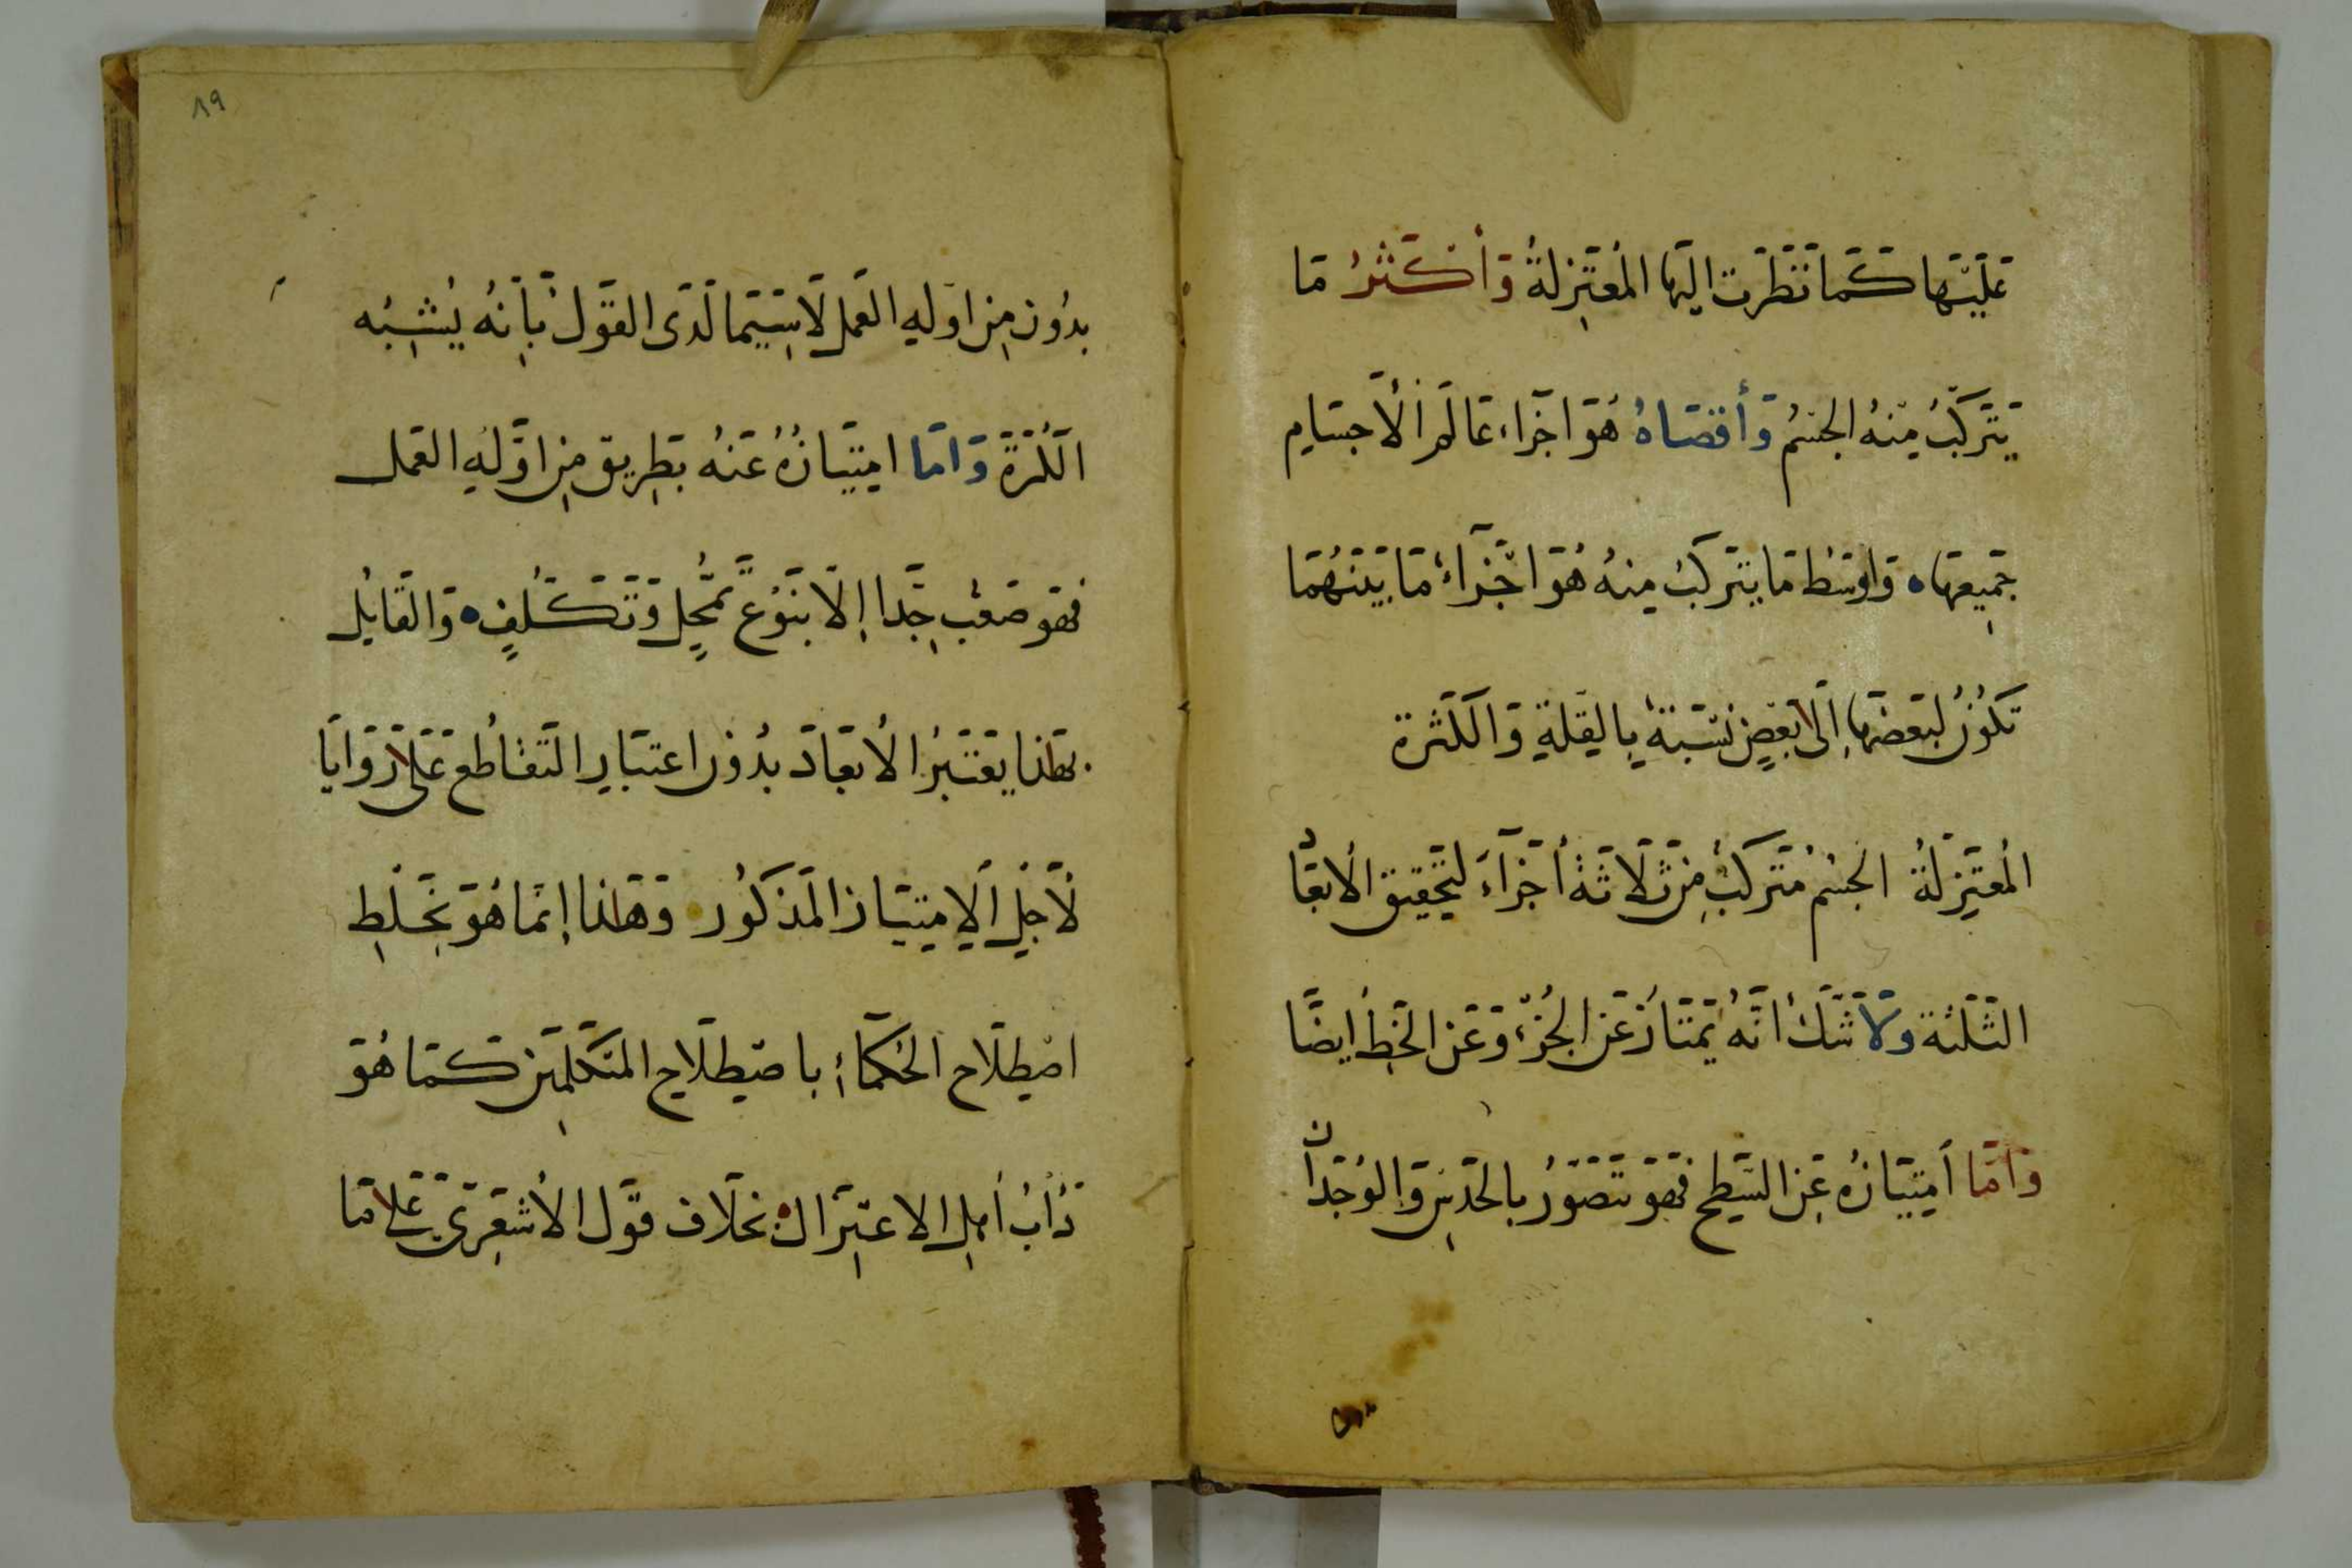 عَلَيْهَا كَمَا نَظَرَتْ اِلَيْهَا الْمُعْتَزِلَةُ وَأَكْثَرُ مَا
يَتَرَكَّبُ مِنْهُ الجِسْمُ وَأَقْصَاهُ هُوَ اَجْزَاء عَالَمِ الْاَجْسَامِ
جَمِيعِهَا ه وَاَوْسَطُ مَا يَتَرَكَّبُ مِنْهُ هُوَ اَجْزَآءُ مَا بَيْنَهُمَا
تَكُوْنُ لِبَعْضِهَا اِلَى بَعْضٍ نِسْبَةٌ بِالْقِلَّةِ وَالْكَثْرَة
الْمُعْتَزِلَةُ الْجِسْمُ مُتَرَكِّبٌ مِنْ ثَلَاثَةِ أَجْزَآءَ لِتَحْقِيقِ الْاَبْعَاد
الثَّلٰثَة وَلَا شَكَّ اَنَّهُ يَمْتَازُ عَنِ الْجُزْءِ وَعَنِ الْخَطِّ اَيْضًا
وَاَمَّا اَمْتِيَازُهُ عَنِ السَّطْحِ فَهُوَ مُتَصَوَّرُ بِالْحَدْسِ وَالْوُجْدَان
٨٩
بدُونِ مِن اوَلهِ العَمَلِ لَاسِيَّمَا لَدَى القَوْلِ بِأَنَّهُ يُشْبِهُ
الكُرَةَ وَامَّا امْتِيَازُهُ عَنْهُ بِطَرِيقِ مِن اوَّلهِ العَمَل
فَهُوَ صَعْبٌ جِدًّا اِلَّا بِنَوْعِ تَمَحُّلٍ وَتَكَلُّفٍ ه وَالقَايِلُ
بِهٰذَا يَعْتَبِرُ الْاَبْعَادَ بِدُونِ اعْتِبَارِ التَّقَاطُعِ عَلَى زَوَايَا
لِاَجْلِ الْاِمْتِيَازِ الْمَذْكُورِ وَهٰذَا اِنَّمَا هُوَ بِخَلْطِ
اصْطِلَاحِ الْحُكَمَآءِ بِاصْطِلَاحِ المُتَكَلِّمِينَ كَمَا هُوَ
دَأْبُ أَهْلِ الاعْتِزَالِ ه بِخِلَافِ قَوْلِ الْاَشْعَرِيِّ عَلَى مَا